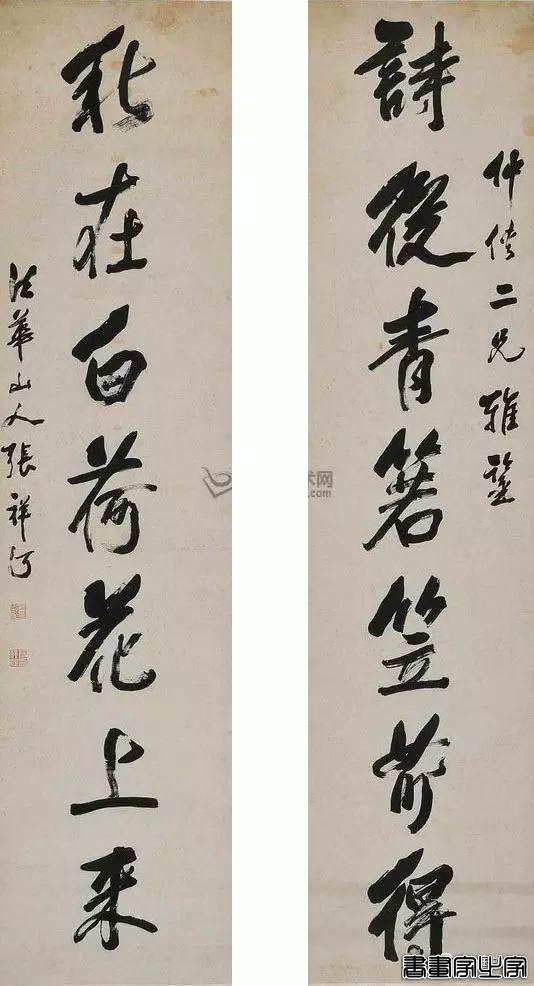 仲俠二兄雅鑒
詩從青箬笠前得
秋在白荷花上来
法華山人張祥河
术网
書畫家之家